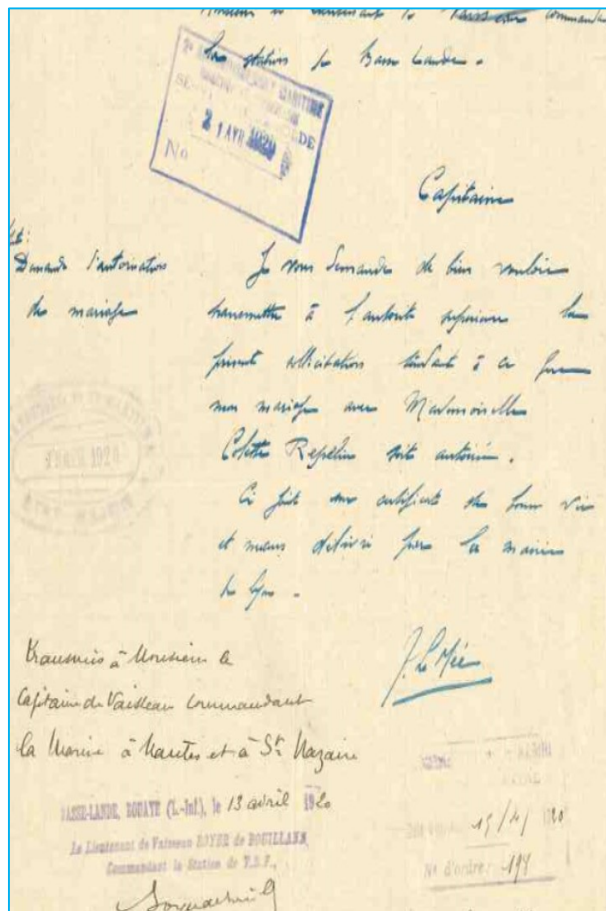 Monsieur le Lieutenant de Vaisseau commandant
la station de Basse Lande.
ARRONDISSEMENT MARITIME
21 AVR 1920
No
Capitaine
Demande d'autorisation
de mariage
Je vous demande de bien vouloir
transmettre à l'autorité supérieure la
présente sollicitation tendant à ce que
mon mariage avec Mademoiselle
Colette soit autorisé.
Ci joint un certificat de bonne vie
et mœurs délivré par la mairie
de Lyon.
J. Le Mée
Transmis à Monsieur le
Capitaine de Vaisseau Commandant
la Marine à Nantes et à St Nazaire
BASSE-LANDE, BOUAYE (L.-Inf.), le 13 avril 1920
Le Lieutenant de Vaisseau ROYER de
Commandant la Station de T.S.F.,
15/4/ 1920
No d'ordre: 198